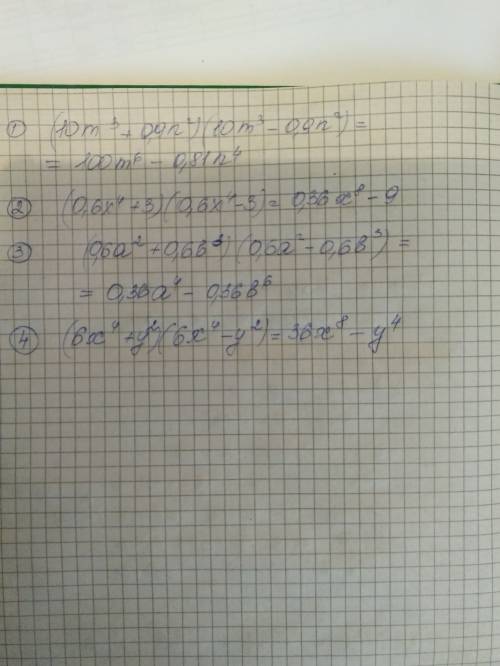 ① (10m³ + 0,9n²)(10m³ - 0,9n²) =
= 100m⁶ - 0,81n⁴
② (0,6x⁴ + 3)(0,6x⁴ - 3) = 0,36x⁸ - 9
③ (0,6a² + 0,6b³)(0,6a² - 0,6b³) =
= 0,36a⁴ - 0,36b⁶
④ (6x⁴ + y²)(6x⁴ - y²) = 36x⁸ - y⁴